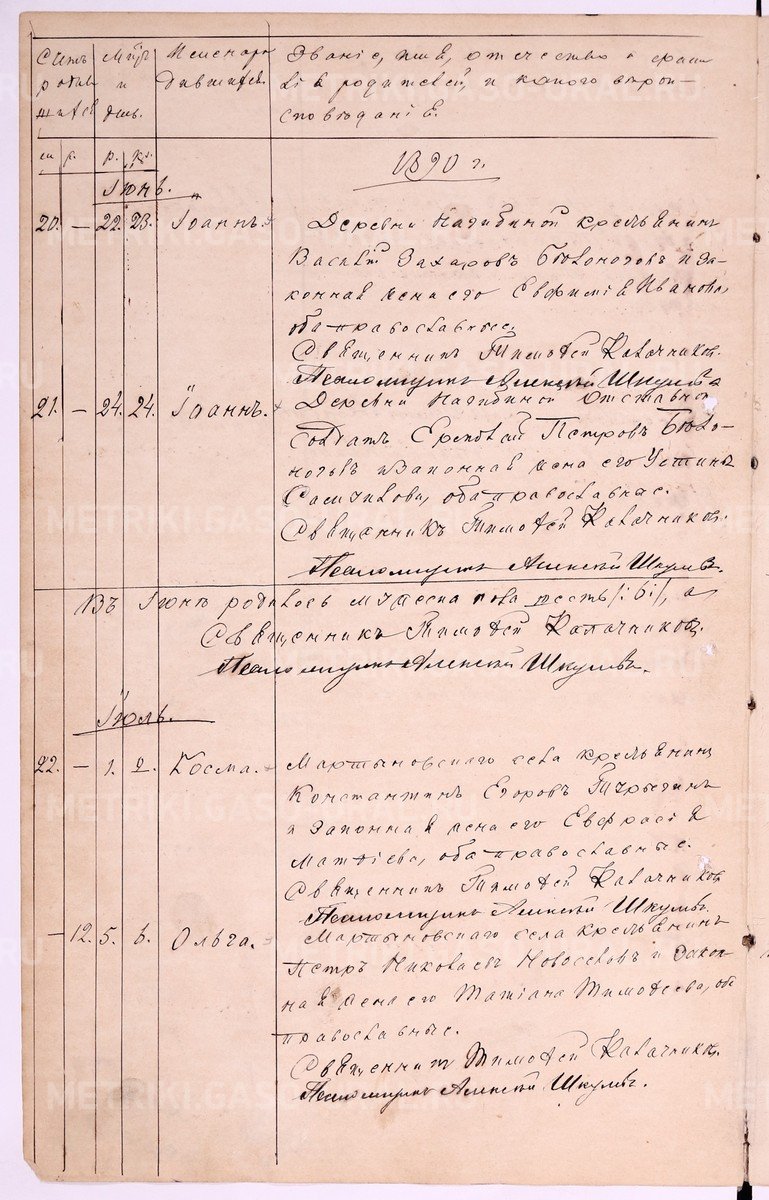 Счетъ Мѣц. Имена ро Званіе, имя, отчество и фами
родив и дившихся. лія родителей, и какого вѣрои
шихся день. сповѣданія.
м. ж. р. к. 1890 г.
Іюнь.
20. — 22. 23. Іоаннъ. Деревни Нагибиной крестьянинъ
Василій Захаровъ Бѣлоноговъ и за-
конная жена его Евфимія Иванова,
оба православные.
Священникъ Тимоѳей Калачниковъ.
Псаломщикъ Алексѣй Шкулевъ
21. — 24. 24. Іоаннъ. Деревни Нагибиной отставной
солдатъ Петровъ Бѣло-
ноговъ и законная жена его Устинья
оба православные.
Священникъ Тимоѳей Калачниковъ.
Псаломщикъ Алексѣй Шкулевъ.
Въ Іюнѣ родилось мужеска пола шесть /: 6 :/, а
Священникъ Тимоѳей Калачниковъ.
Псаломщикъ Алексѣй Шкулевъ.
Іюль.
22. — 1. 2. Косма. Мартыновскаго села крестьянинъ
Константинъ Егоровъ
и законная жена его Евфрасія
Матѳіева, оба православные.
Священникъ Тимоѳей Калачниковъ
Псаломщикъ Алексѣй Шкулевъ.
— 12. 5. 6. Ольга. Мартыновскаго села крестьянинъ
Петръ Николаевъ Новоселовъ и закон
ная жена его Татіана Тимоѳеева, оба
православные.
Священникъ Тимоѳей Калачниковъ.
Псаломщикъ Алексѣй Шкулевъ.